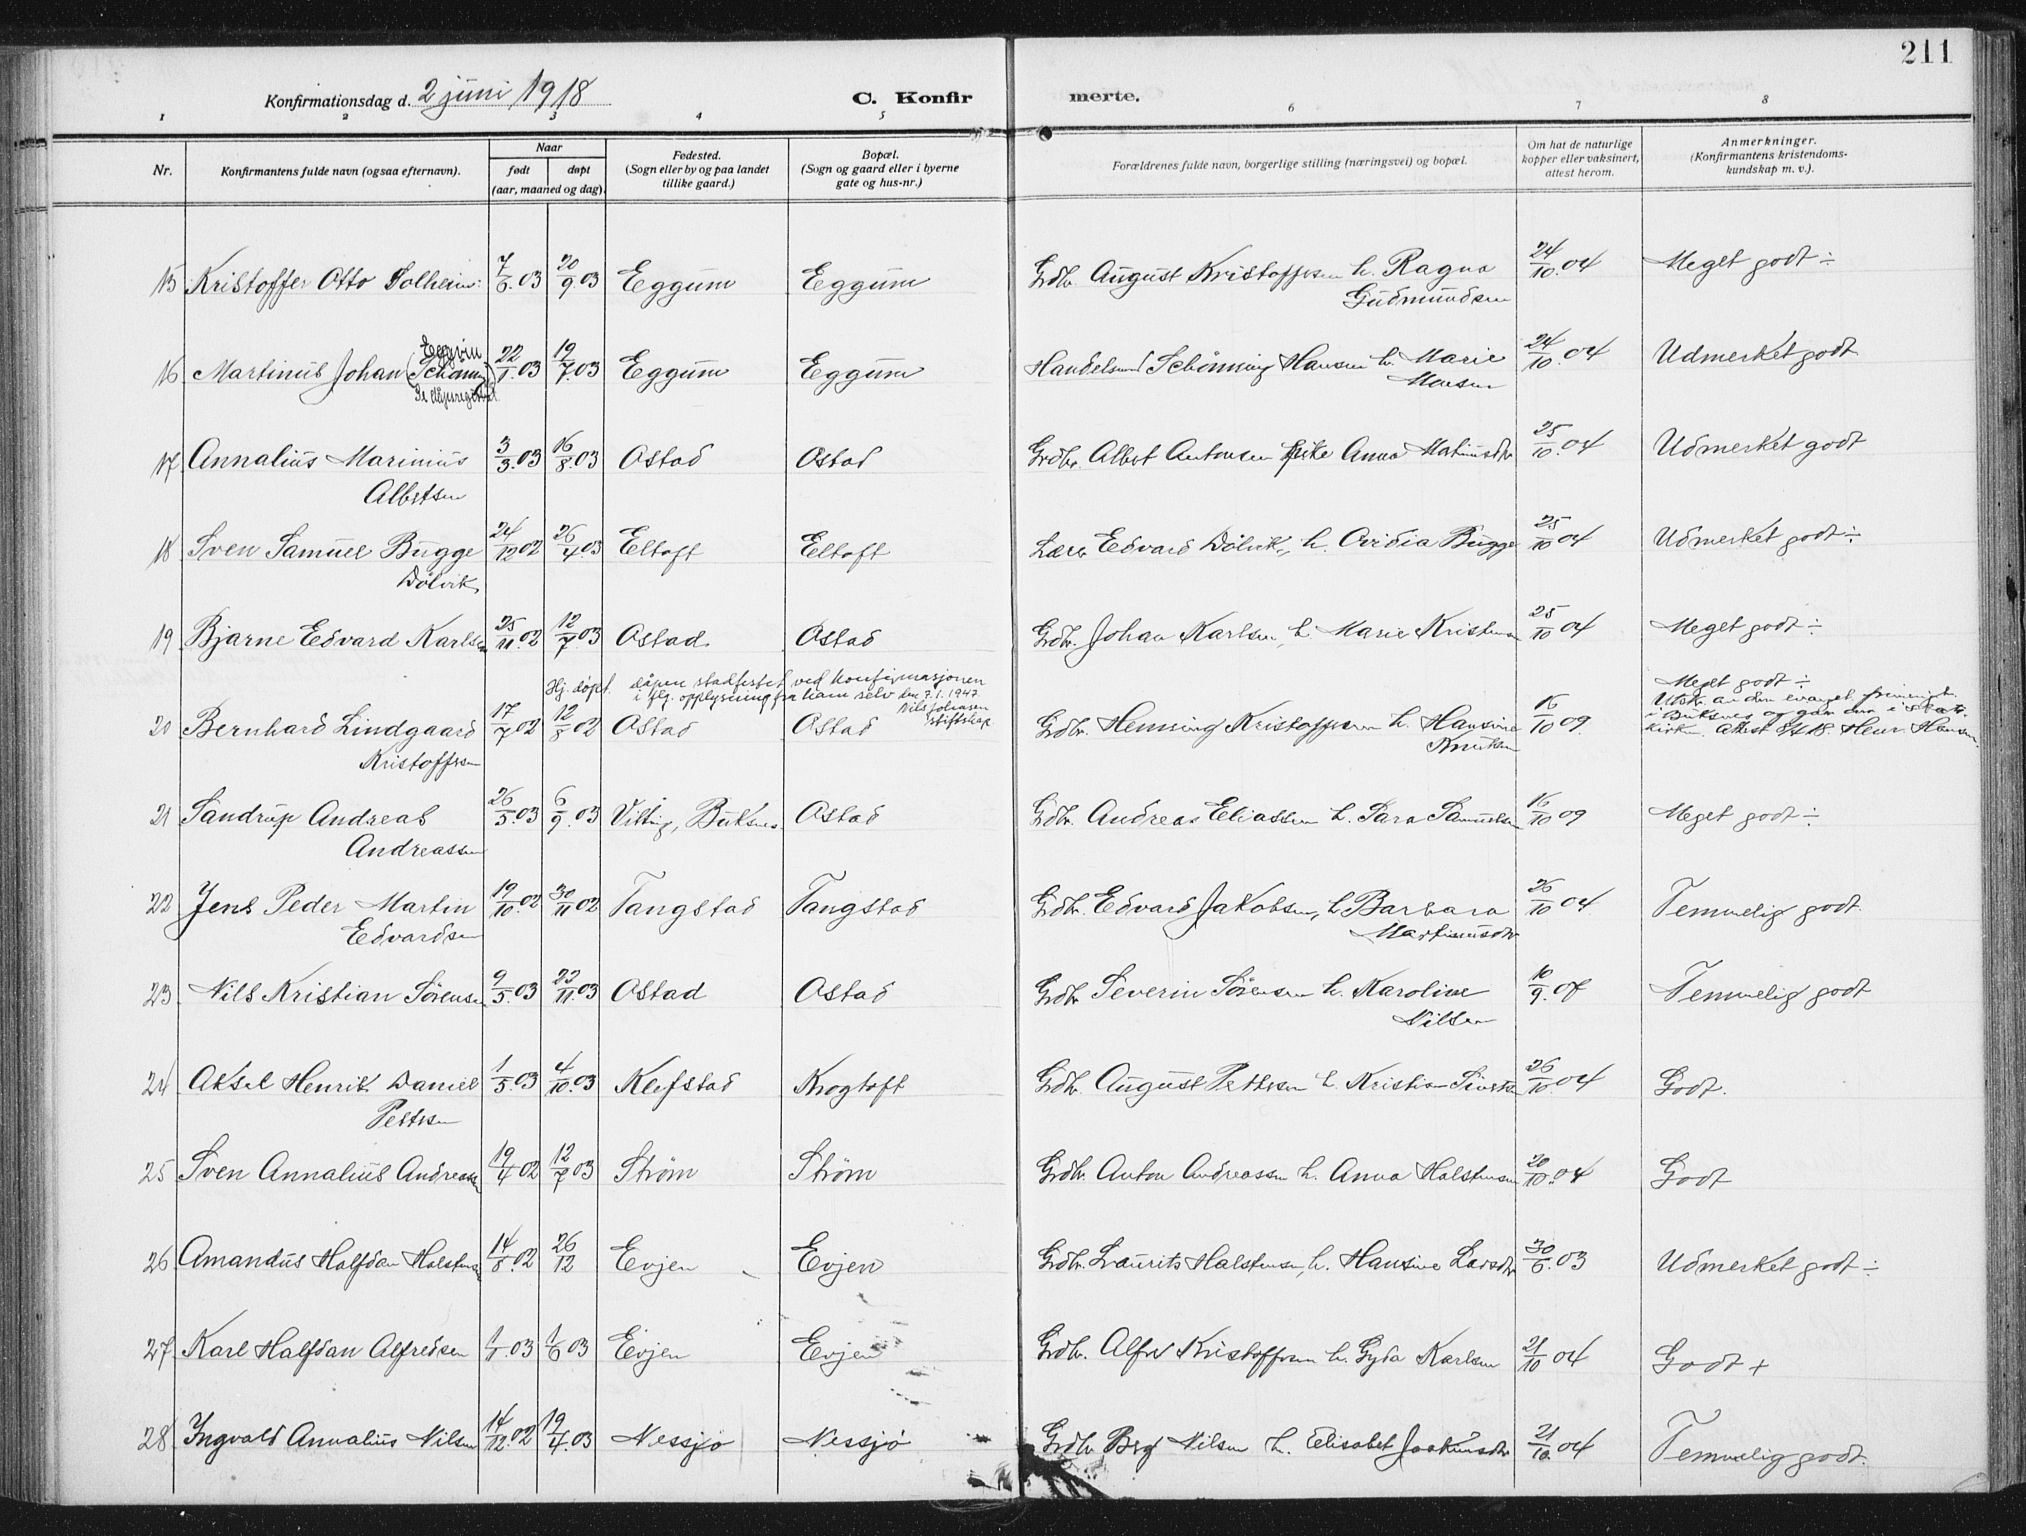 211
Konfirmationsdag d. 2 juni 1918
C. Konfir
merte.
1 2 3 4 5 6 7 8
Nr.
Konfirmantens fulde navn (ogsaa efternavn).
Naar
født døpt
(aar, maaned og dag).
Fødested.
(Sogn eller by og paa landet
tillike gaard.)
Bopæl.
(Sogn og gaard eller i byerne
gate og hus-nr.)
Forældrenes fulde navn, borgerlige stilling (næringsvei) og bopæl.
Om hat de naturlige
kopper eller vaksinert,
attest herom.
Anmerkninger.
(Konfirmantens kristendoms-
kundskap m. v.).
15 Kristoffer Otto Solheim 7/6.03 20/9.03 Eggum Eggum Grdbr. August Kristoffersen h. Ragna 24/10.04 Meget godt ÷
Gudmundsen
Eggvin
16 Martinus Johan (Schønning) 22/1.03 19/7.03 Eggum Eggum Handelsmd Schønning Hansen h. Marie 24/10.04 Udmerket godt
17 Annalius Marinius 3/3.03 16/8.03 Ostad Ostad Grdbr. Albert Antonsen Anna 25/10.04 Udmerket godt
Albertsen
18 Sven Samuel Bugge 24/12 02 26/4.03 Eltoft Eltoft Lærer Edvard Dølvik, h. Ovidia Bugge 25/10 04 Udmerket godt ÷
Dølvik
19 Bjarne Edvard Karlsen 25/11.02 12/7.03 Ostad Ostad Grdbr. Johan Karlsen, h. Marie Kristensen 25/10 04 Meget godt ÷
Hj. døpt. dåpen stadfestet ved konfirmasjonen
i flg. opplysning fra ham selv den 7.1.1947
Nils Johansen
Meget godt ÷
20 Bernhard Lindgaard 17/7 02 12/8 02 Ostad Ostad Grdbr. Henning Kristoffersen h. Hansine 16/10 09
Kristoffersen
Knutsen
21 Sandrup Andreas 26/5.03 6/9.03 Buksnes Ostad Grdbr. Andreas Eliassen h. Sara Samuelsen 16/10 09 Meget godt ÷
Andreassen
22 Jens Peder Martin 19/10.02 30/11 02 Tangstad Tangstad Grdbr. Edvard Jakobsen, h. Barbara 26/10 04 Temmelig godt.
Edvardsen
Martinusdtr
23 Nils Kristian Sørensen 9/5.03 22/11.03 Ostad Ostad Grdbr Severin Sørensen h. Karoline 10/9.07 Temmelig godt
Nilsen
24 Aksel Henrik Daniel 1/5.03 4/10.03 Klefstad Krogtoft Grdbr. August Pettersen h. Kristian Sivertsen 26/10.04 Godt.
Pettersen
25 Sven Annalius Andreassen 19/4 02 12/7 03 Strøm Strøm Grdbr. Anton Andreassen h. Anna Halstensen 20/10.04 Godt
26 Amandus Halfdan Halstensen 14/8.02 26/12 Evjen Evjen Grdbr. Laurits Halstensen, h. Hansine Larsdtr 30/6.03 Udmerket godt ÷
27 Karl Halfdan Alfredsen 1/1.03 1/6 03 Evjen Evjen Grdbr. Alfred Kristoffersen h. Gyda Karlsen 21/10 04 Godt +
28 Ingvald Annalius Nilsen 14/12.02 19/4.03 Nessjø Nessjø Grdbr Berg Nilsen h. Elisabet Joakimsdtr 21/10 04 Temmelig godt.